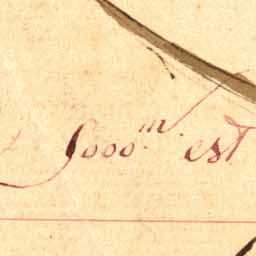 5000.m est